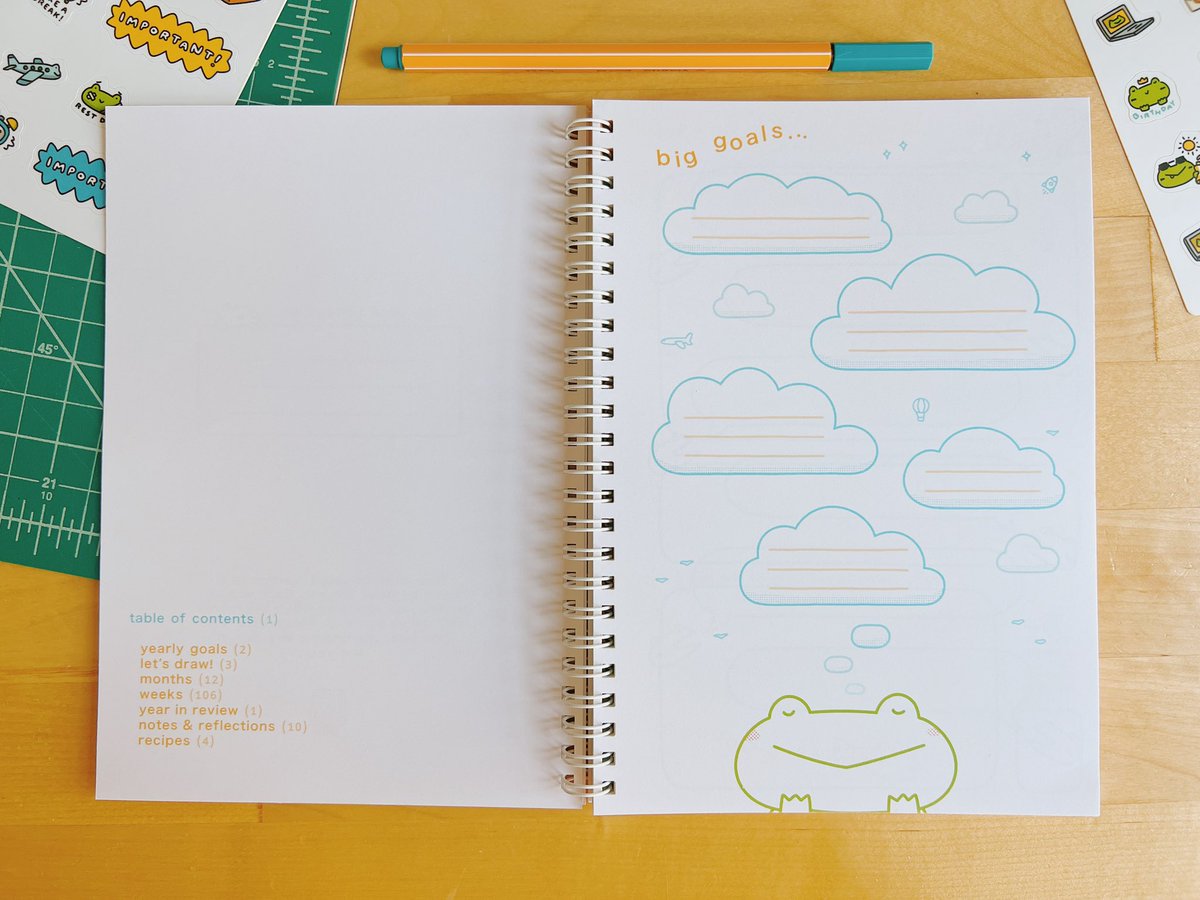 IMPORTANT!
REST
IMPORT
2
45°
21
10
BIRTHDAY
big goals...
table of contents (1)
yearly goals (2)
let's draw! (3)
months (12)
weeks (106)
year in review (1)
notes & reflections (10)
recipes (4)